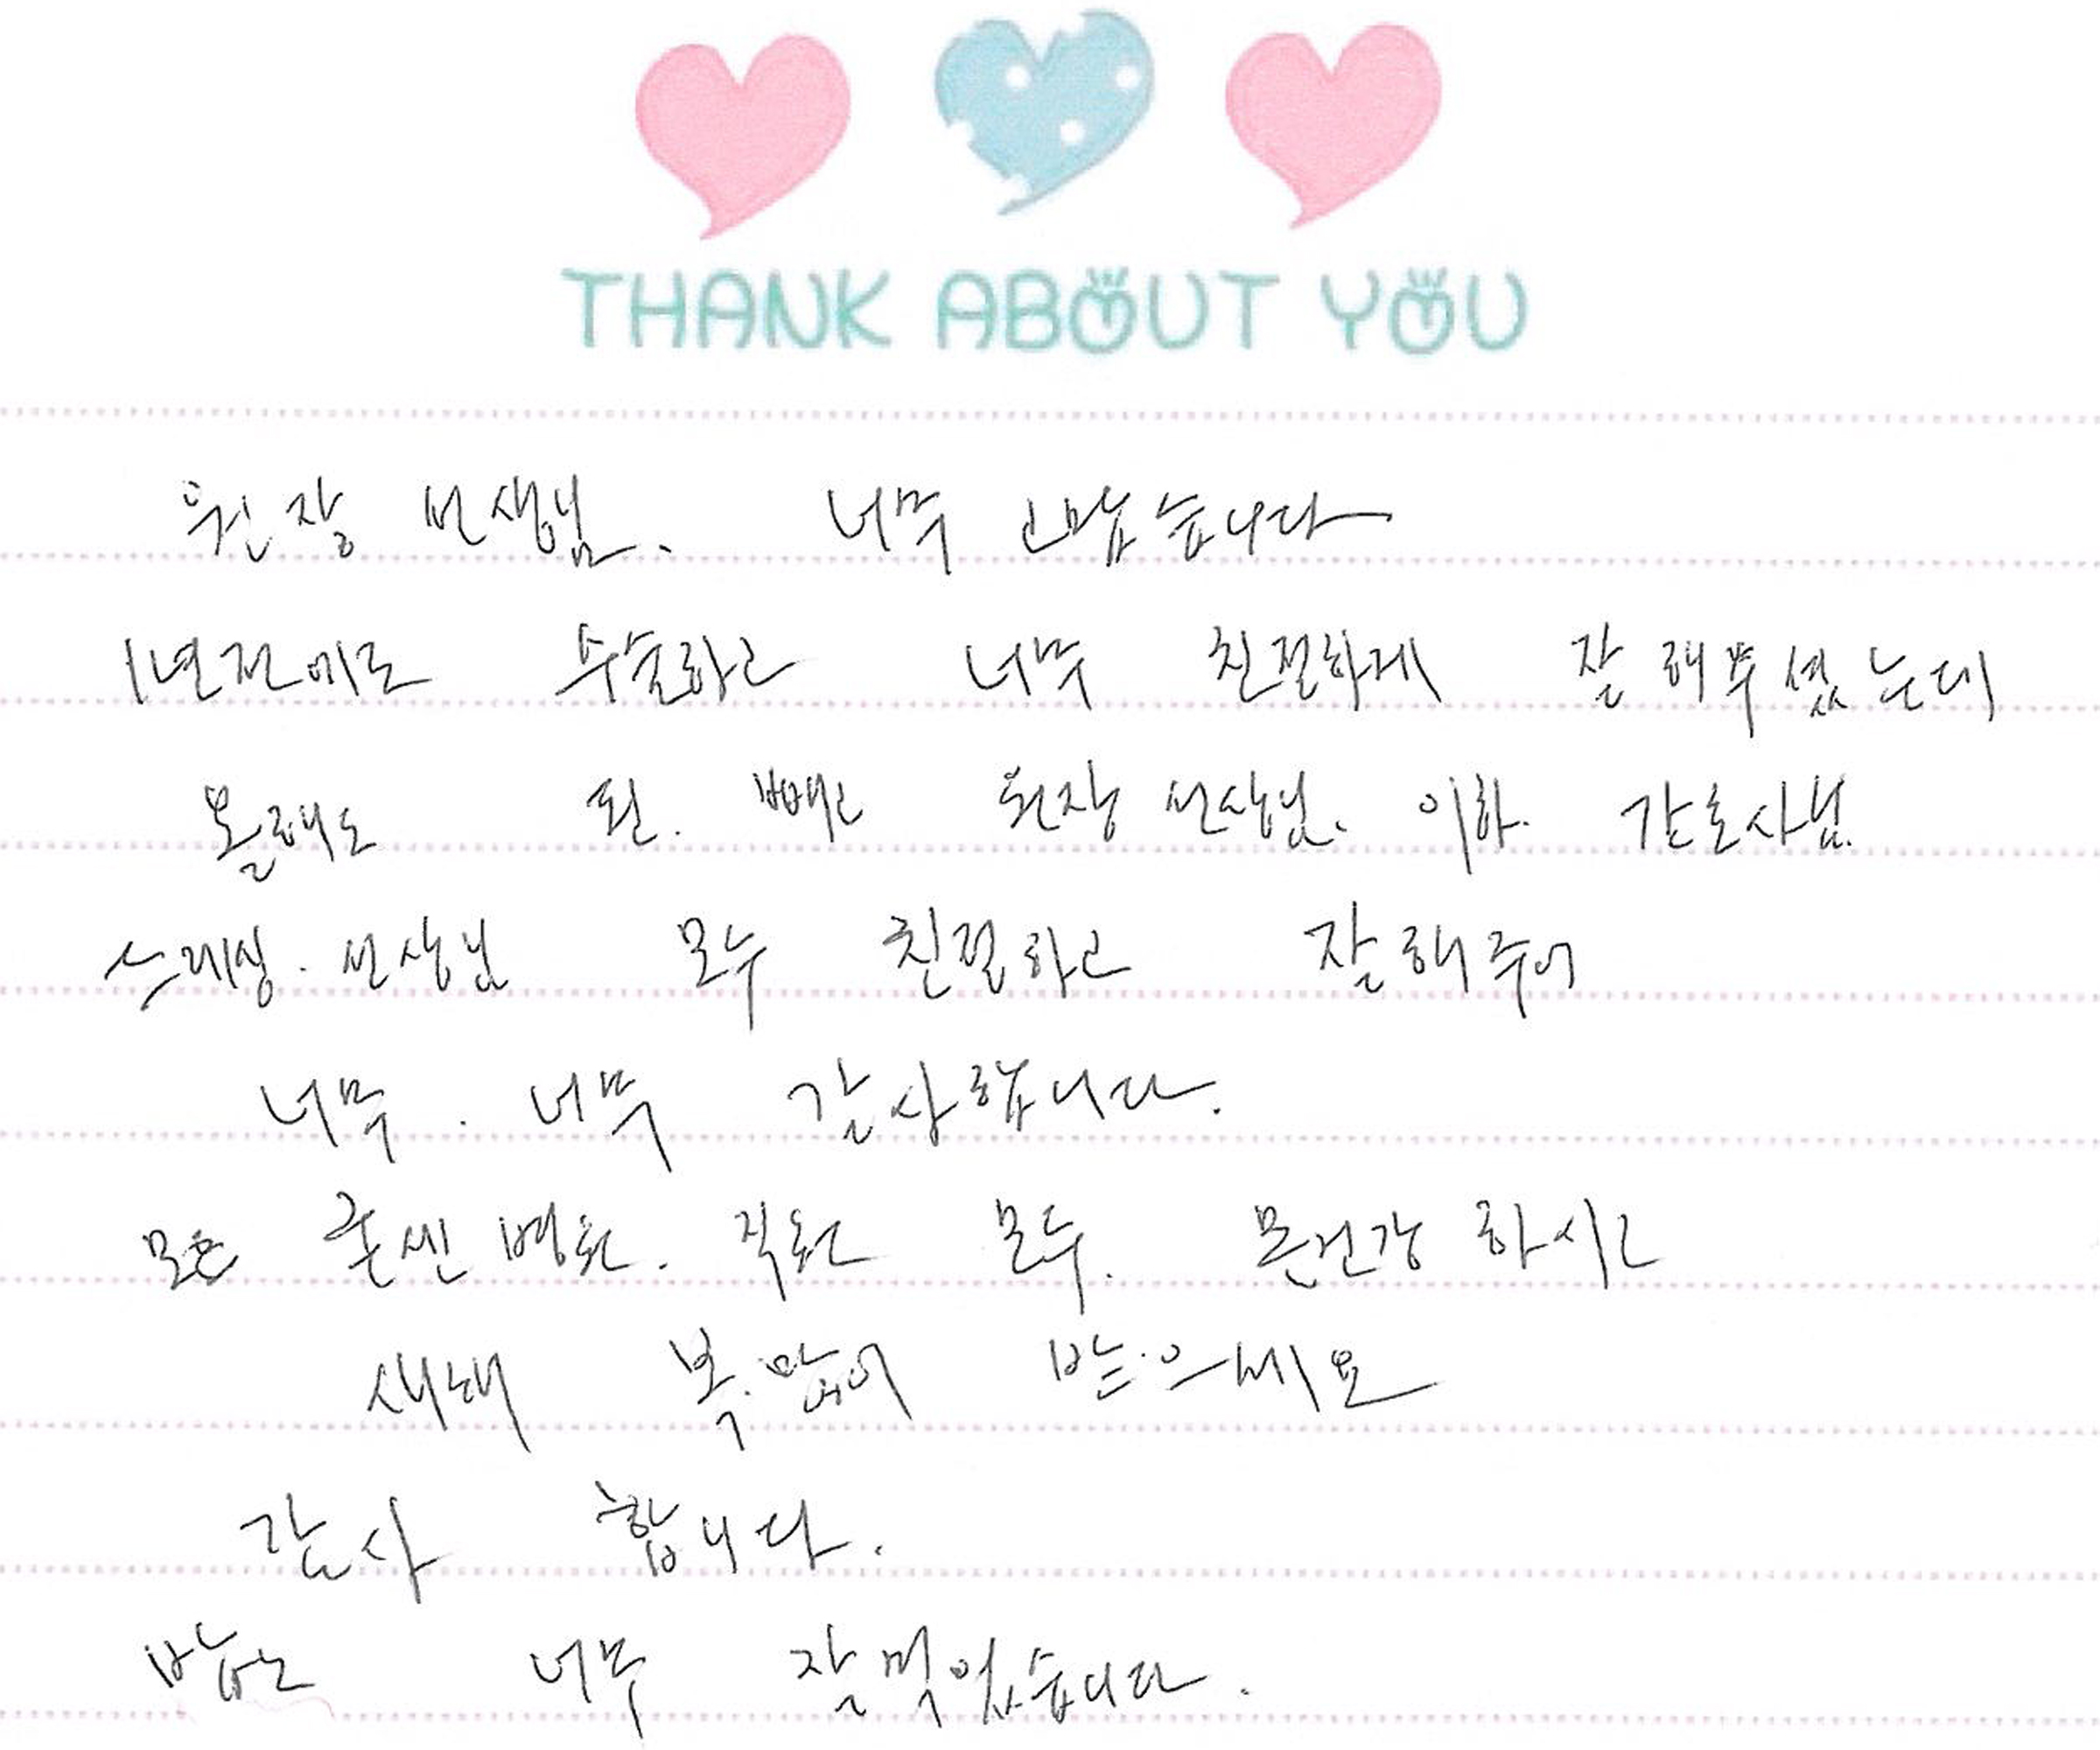 THANK ABOUT YOU
원장 선생님. 너무 고맙습니다
1년전에도 수술하고 너무 친절하게 잘 해주셨는데
올해도 핀. 빼고 원장 선생님. 이하. 간호사님.
선생님 모두 친절하고 잘해주어
너무. 너무 감사합니다.
모든 병원. 직원 모두. 몸건강 하시고
새해 복. 많이 받으세요
감사 합니다.
밥도 너무 잘먹었습니다.